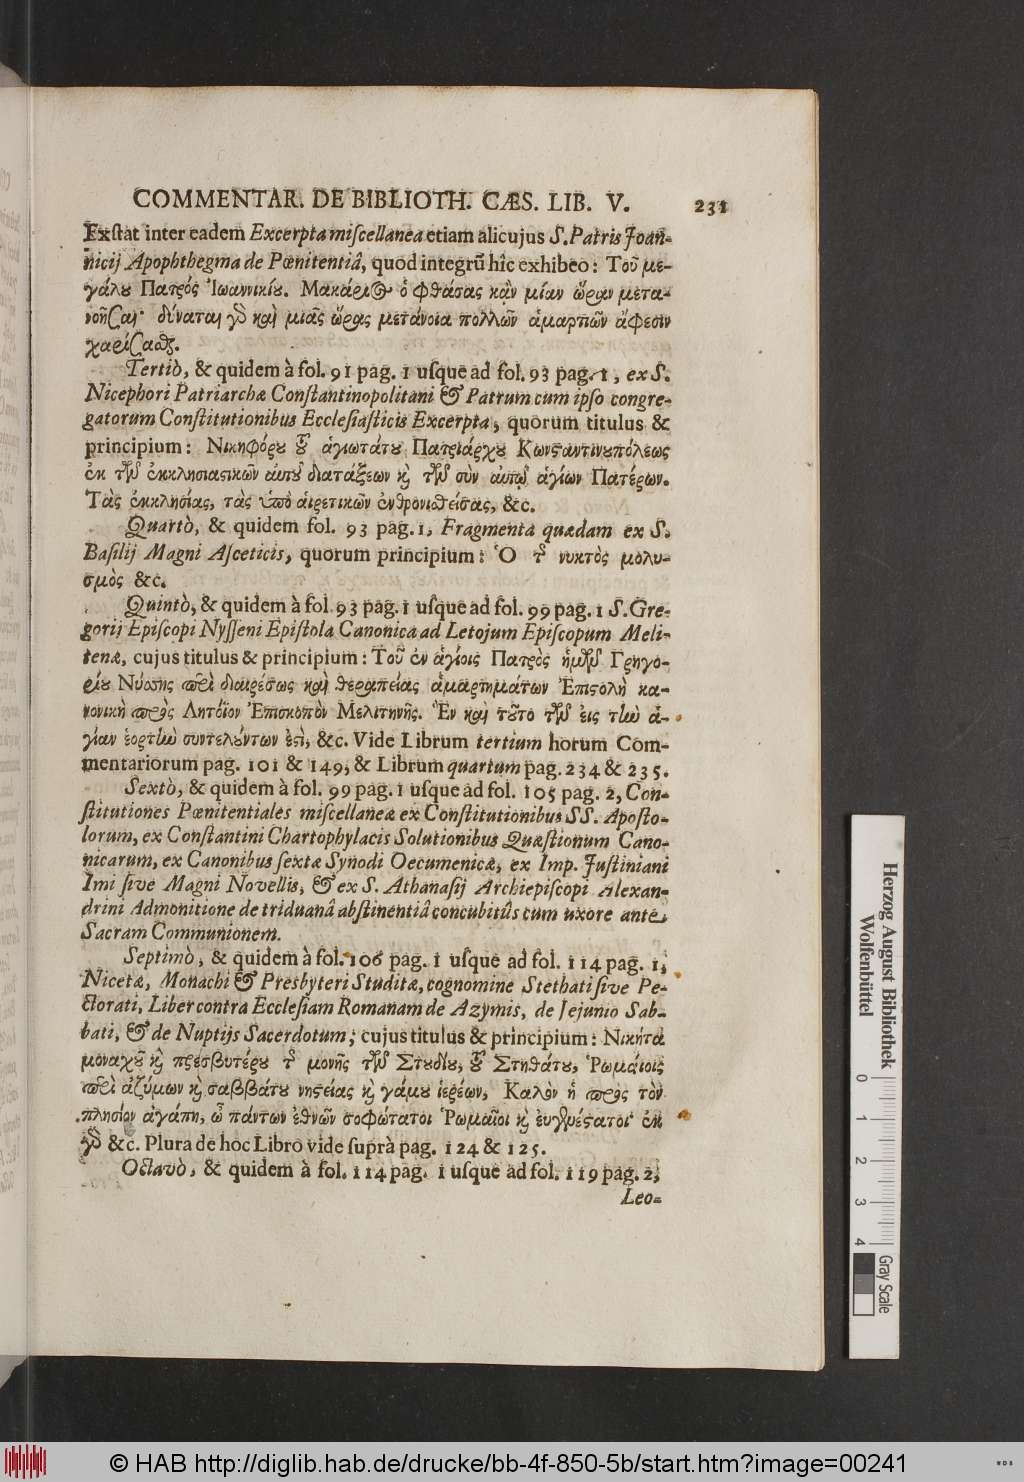 COMMENTAR. DE BIBLIOTH. CÆS. LIB. V. 231
Exſtat inter eadem Excerpta miſcellanea etiam alicujus S. Patris Joan-
nicij Apophthegma de Pœnitentiâ, quod integrũ hîc exhibeo: Τοῦ με-
γάλου Πατρός Ἰωαννικίου. Μακάριος ὁ φθάσας κᾂν μίαν ὥραν μετα-
νοῆσαι· δύναται γὸ καὶ μιᾶς ὥρας μετάνοια πολλῶν ἁμαρτιῶν ἄφεσιν
χαρίσαθζ.
Tertiò, & quidem à fol. 91 pag. 1 uſque ad fol. 93 pag. 1, ex S.
Nicephori Patriarchæ Conſtantinopolitani & Patrum cum ipſo congre-
gatorum Conſtitutionibus Eccleſiaſticis Excerpta, quorum titulus &
principium: Νικηφόρου τοῦ ἁγιωτάτου Πατριάρχου Κωνσταντινουπόλεως
ἐκ τῶν ἐκκλησιαστικῶν αὐτοῦ διατάξεων καὶ τῶν σὺν αὐτῷ ἁγίων Πατέρων.
Τὰς ἐκκλησίας, τὰς ὑπὸ αἱρετικῶν ἐνθρονισθείσας, &c.
Quartò, & quidem fol. 93 pag. 1, Fragmenta quædam ex S.
Baſilij Magni Aſceticis, quorum principium: Ὁ τῆς νυκτὸς μολυ-
σμὸς &c.
Quintò, & quidem à fol. 93 pag. 1 uſque ad fol. 99 pag. 1 S. Gre-
gorij Epiſcopi Nyſſeni Epiſtola Canonica ad Letojum Epiſcopum Meli-
tenæ, cujus titulus & principium: Τοῦ ἐν ἁγίοις Πατρὸς ἡμῶν Γρηγο-
ρίου Νύσσης περὶ διαιρέσεως καὶ θεραπείας ἁμαρτημάτων Ἐπιστολὴ κα-
νονικὴ πρὸς Λητόϊον Ἐπισκοπὸν Μελιτηνῆς. Ἓν καὶ τοῦτο τῶν εἰς τὴν ἁ-
γίαν ἑορτὴν συντελούντων ἐστὶ, &c. Vide Librum tertium horum Com-
mentariorum pag. 101 & 149, & Librum quartum pag. 234 & 235.
Sextò, & quidem à fol. 99 pag. 1 uſque ad fol. 105 pag. 2, Con-
ſtitutiones Pœnitentiales miſcellaneæ ex Conſtitutionibus SS. Apoſto-
lorum, ex Conſtantini Chartophylacis Solutionibus Quæſtionum Cano-
nicarum, ex Canonibus ſextæ Synodi Oecumenicæ, ex Imp. Juſtiniani
Imi ſive Magni Novellis, & ex S. Athanaſij Archiepiſcopi Alexan-
drini Admonitione de triduanâ abſtinentiâ concubitûs cum uxore ante
Sacram Communionem.
Septimò, & quidem à fol. 106 pag. 1 uſque ad fol. 114 pag. 1,
Nicetæ, Monachi & Presbyteri Studitæ, cognomine Stethati ſive Pe-
ctorati, Liber contra Eccleſiam Romanam de Azymis, de Jejunio Sab-
bati, & de Nuptijs Sacerdotum; cujus titulus & principium: Νικήτα
μοναχοῦ καὶ πρεσβυτέρου τῆς μονῆς τῶν Στουδίου, τοῦ Στηθάτου, Ῥωμαίοις
περὶ ἀζύμων καὶ σαββάτου νηστείας καὶ γάμου ἱερέων, Καλὸν ἡ πρὸς τὸν
πλησίον ἀγάπη, ὦ πάντων ἐθνῶν σοφώτατοι Ῥωμαῖοι καὶ εὐγενέστατοι· ἐκ
γὸ &c. Plura de hoc Libro vide ſuprà pag. 124 & 125.
Octavò, & quidem à fol. 114 pag. 1 uſque ad fol. 119 pag. 2,
Leo-
Herzog August Bibliothek
Wolfenbüttel
0 1 2 3 4
Gray Scale
© HAB http://diglib.hab.de/drucke/bb-4f-850-5b/start.htm?image=00241